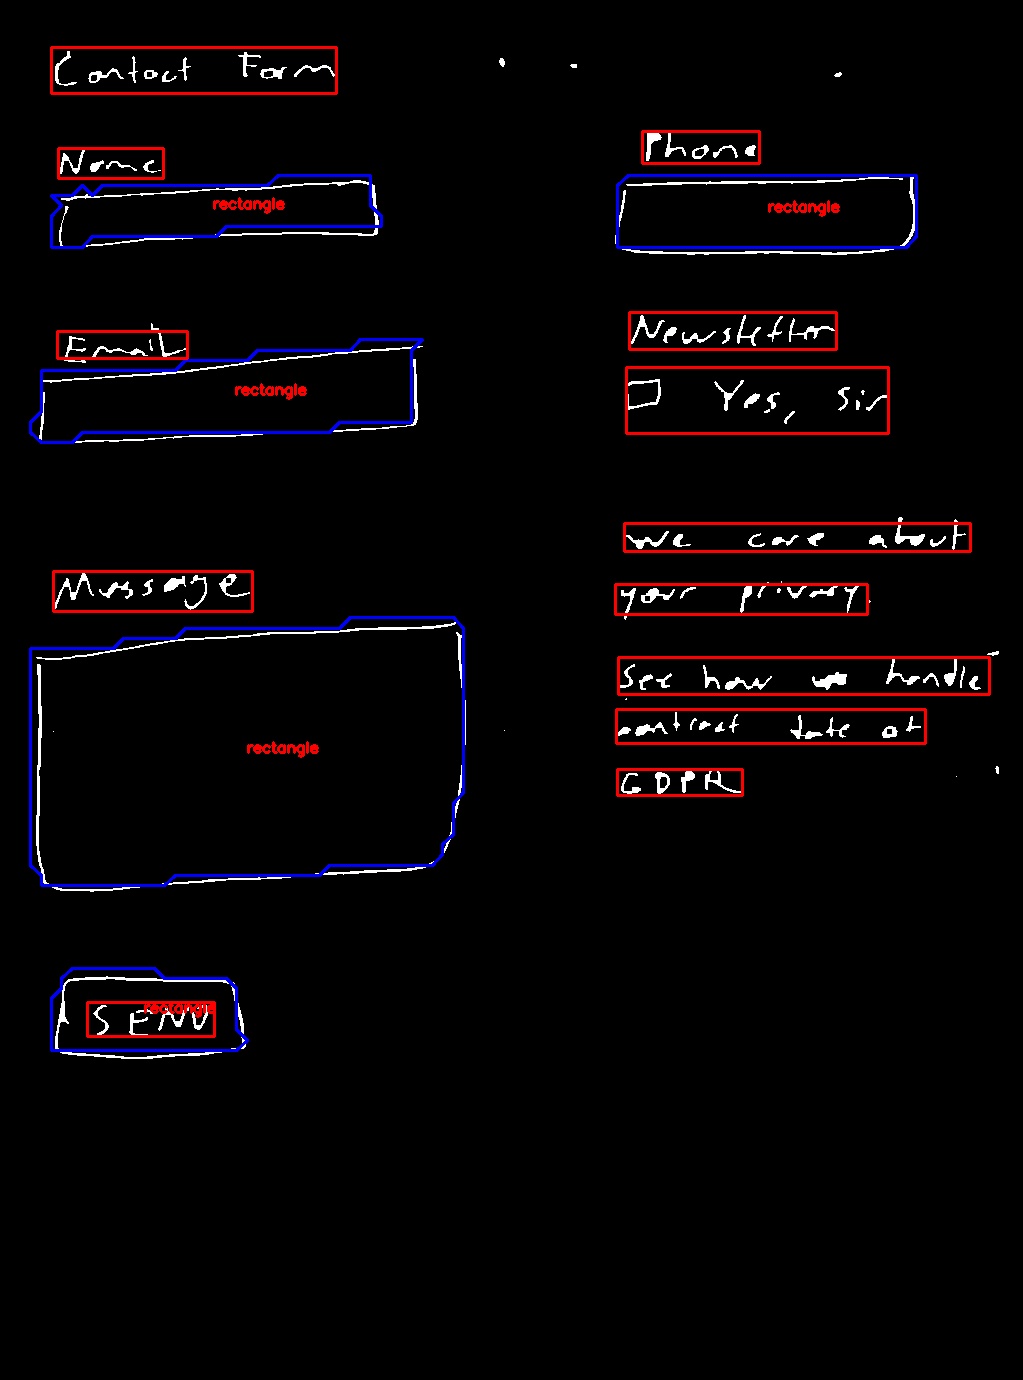 Contact Form
Name
rectangle
Email
rectangle
Message
rectangle
rectangle
SEND
Phone
rectangle
Newsletter
Yes, sir
We care about
your privacy.
See how we handle
contract date at
GDPR